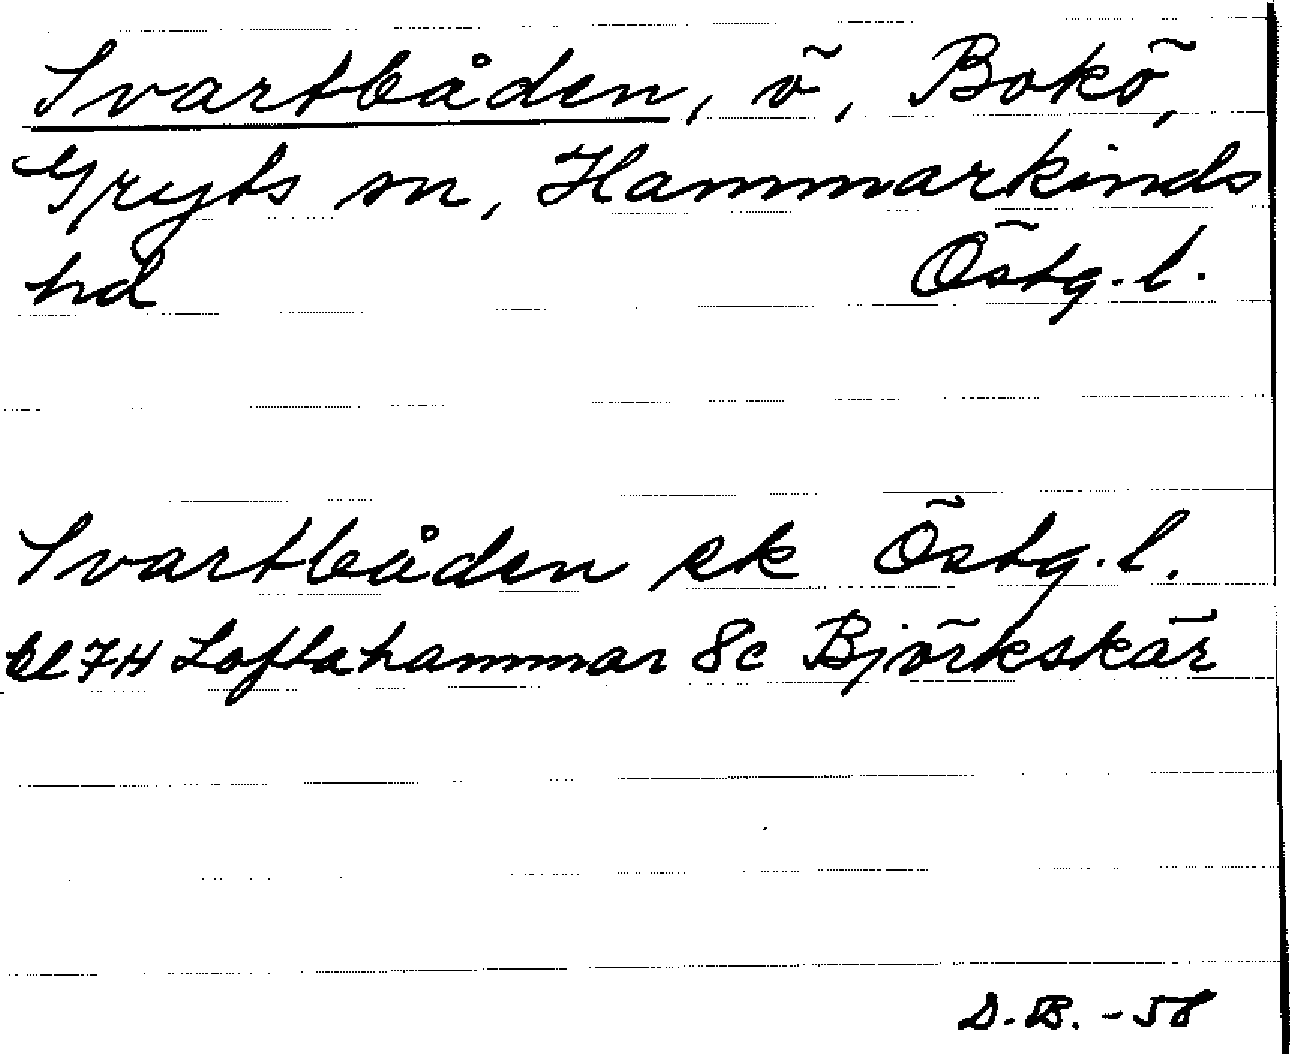 Svartbåden, ö, Bokö,
Gryts sn, Hammarkinds
hd Östg. l.
Svartbåden ek Östg. l.
bl 7H Loftahammar 8c Björkskär
D.B. -58